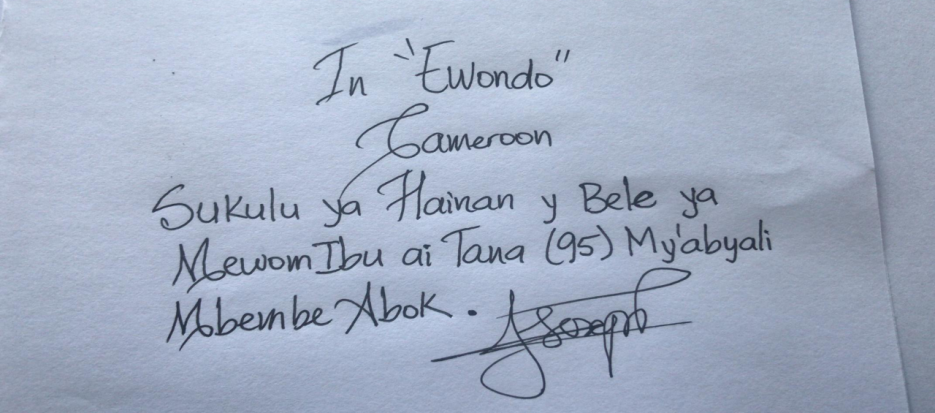 In "Ewondo"
Cameroon
Sukulu ya Hainan y Bele ya
Mewom Ibu ai Tana (95) My'abyali
Mbembe Abok.
Joseph